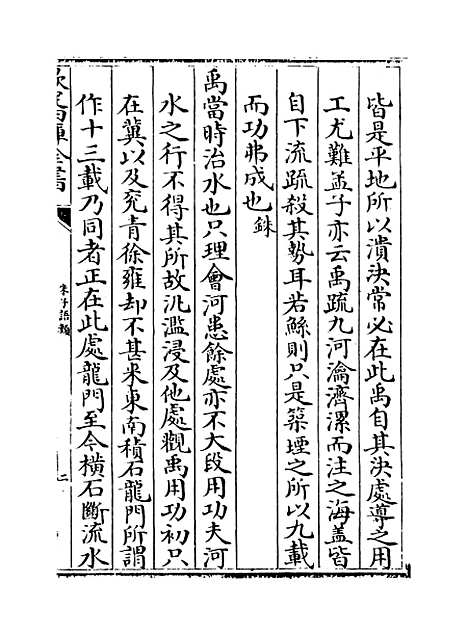 皆是平地所以潰決常必在此禹自其決處導之用
工尤難孟子亦云禹疏九河瀹濟漯而注之海蓋皆
自下流疏殺其勢耳若鯀則只是築堙之所以九載
而功弗成也銖
禹當時治水也只理會河患餘處亦不大段用功夫河
水之行不得其所故汎濫浸及他處觀禹用功初只
在冀以及兖青徐雍却不甚来東南積石龍門所謂
作十三載乃同者正在此處龍門至今橫石斷流水
欽定四庫全書
朱子語類
二